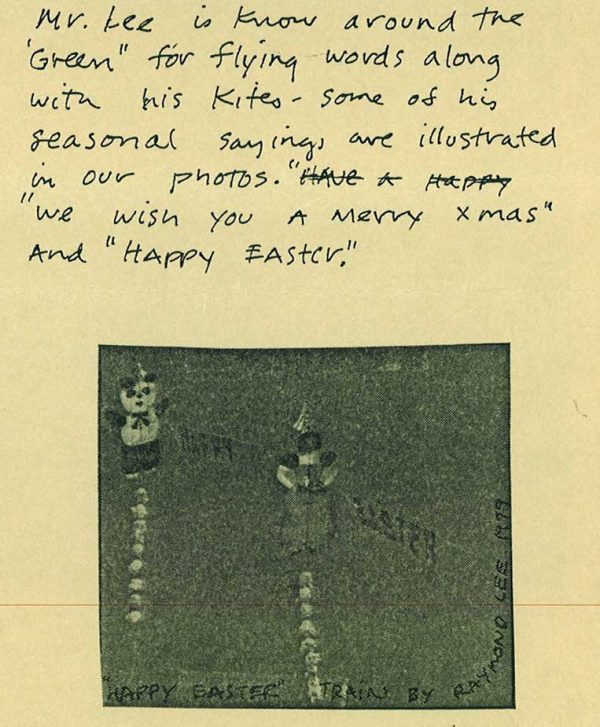 Mr. Lee is Know around the
"Green" for flying words along
with his Kites - Some of his
seasonal sayings are illustrated
in our photos. "HAVE A Happy
"We wish you A Merry Xmas"
And "HAppy EASter."
"HAPPY EASTER" TRAIN BY RAYMOND LEE 1979